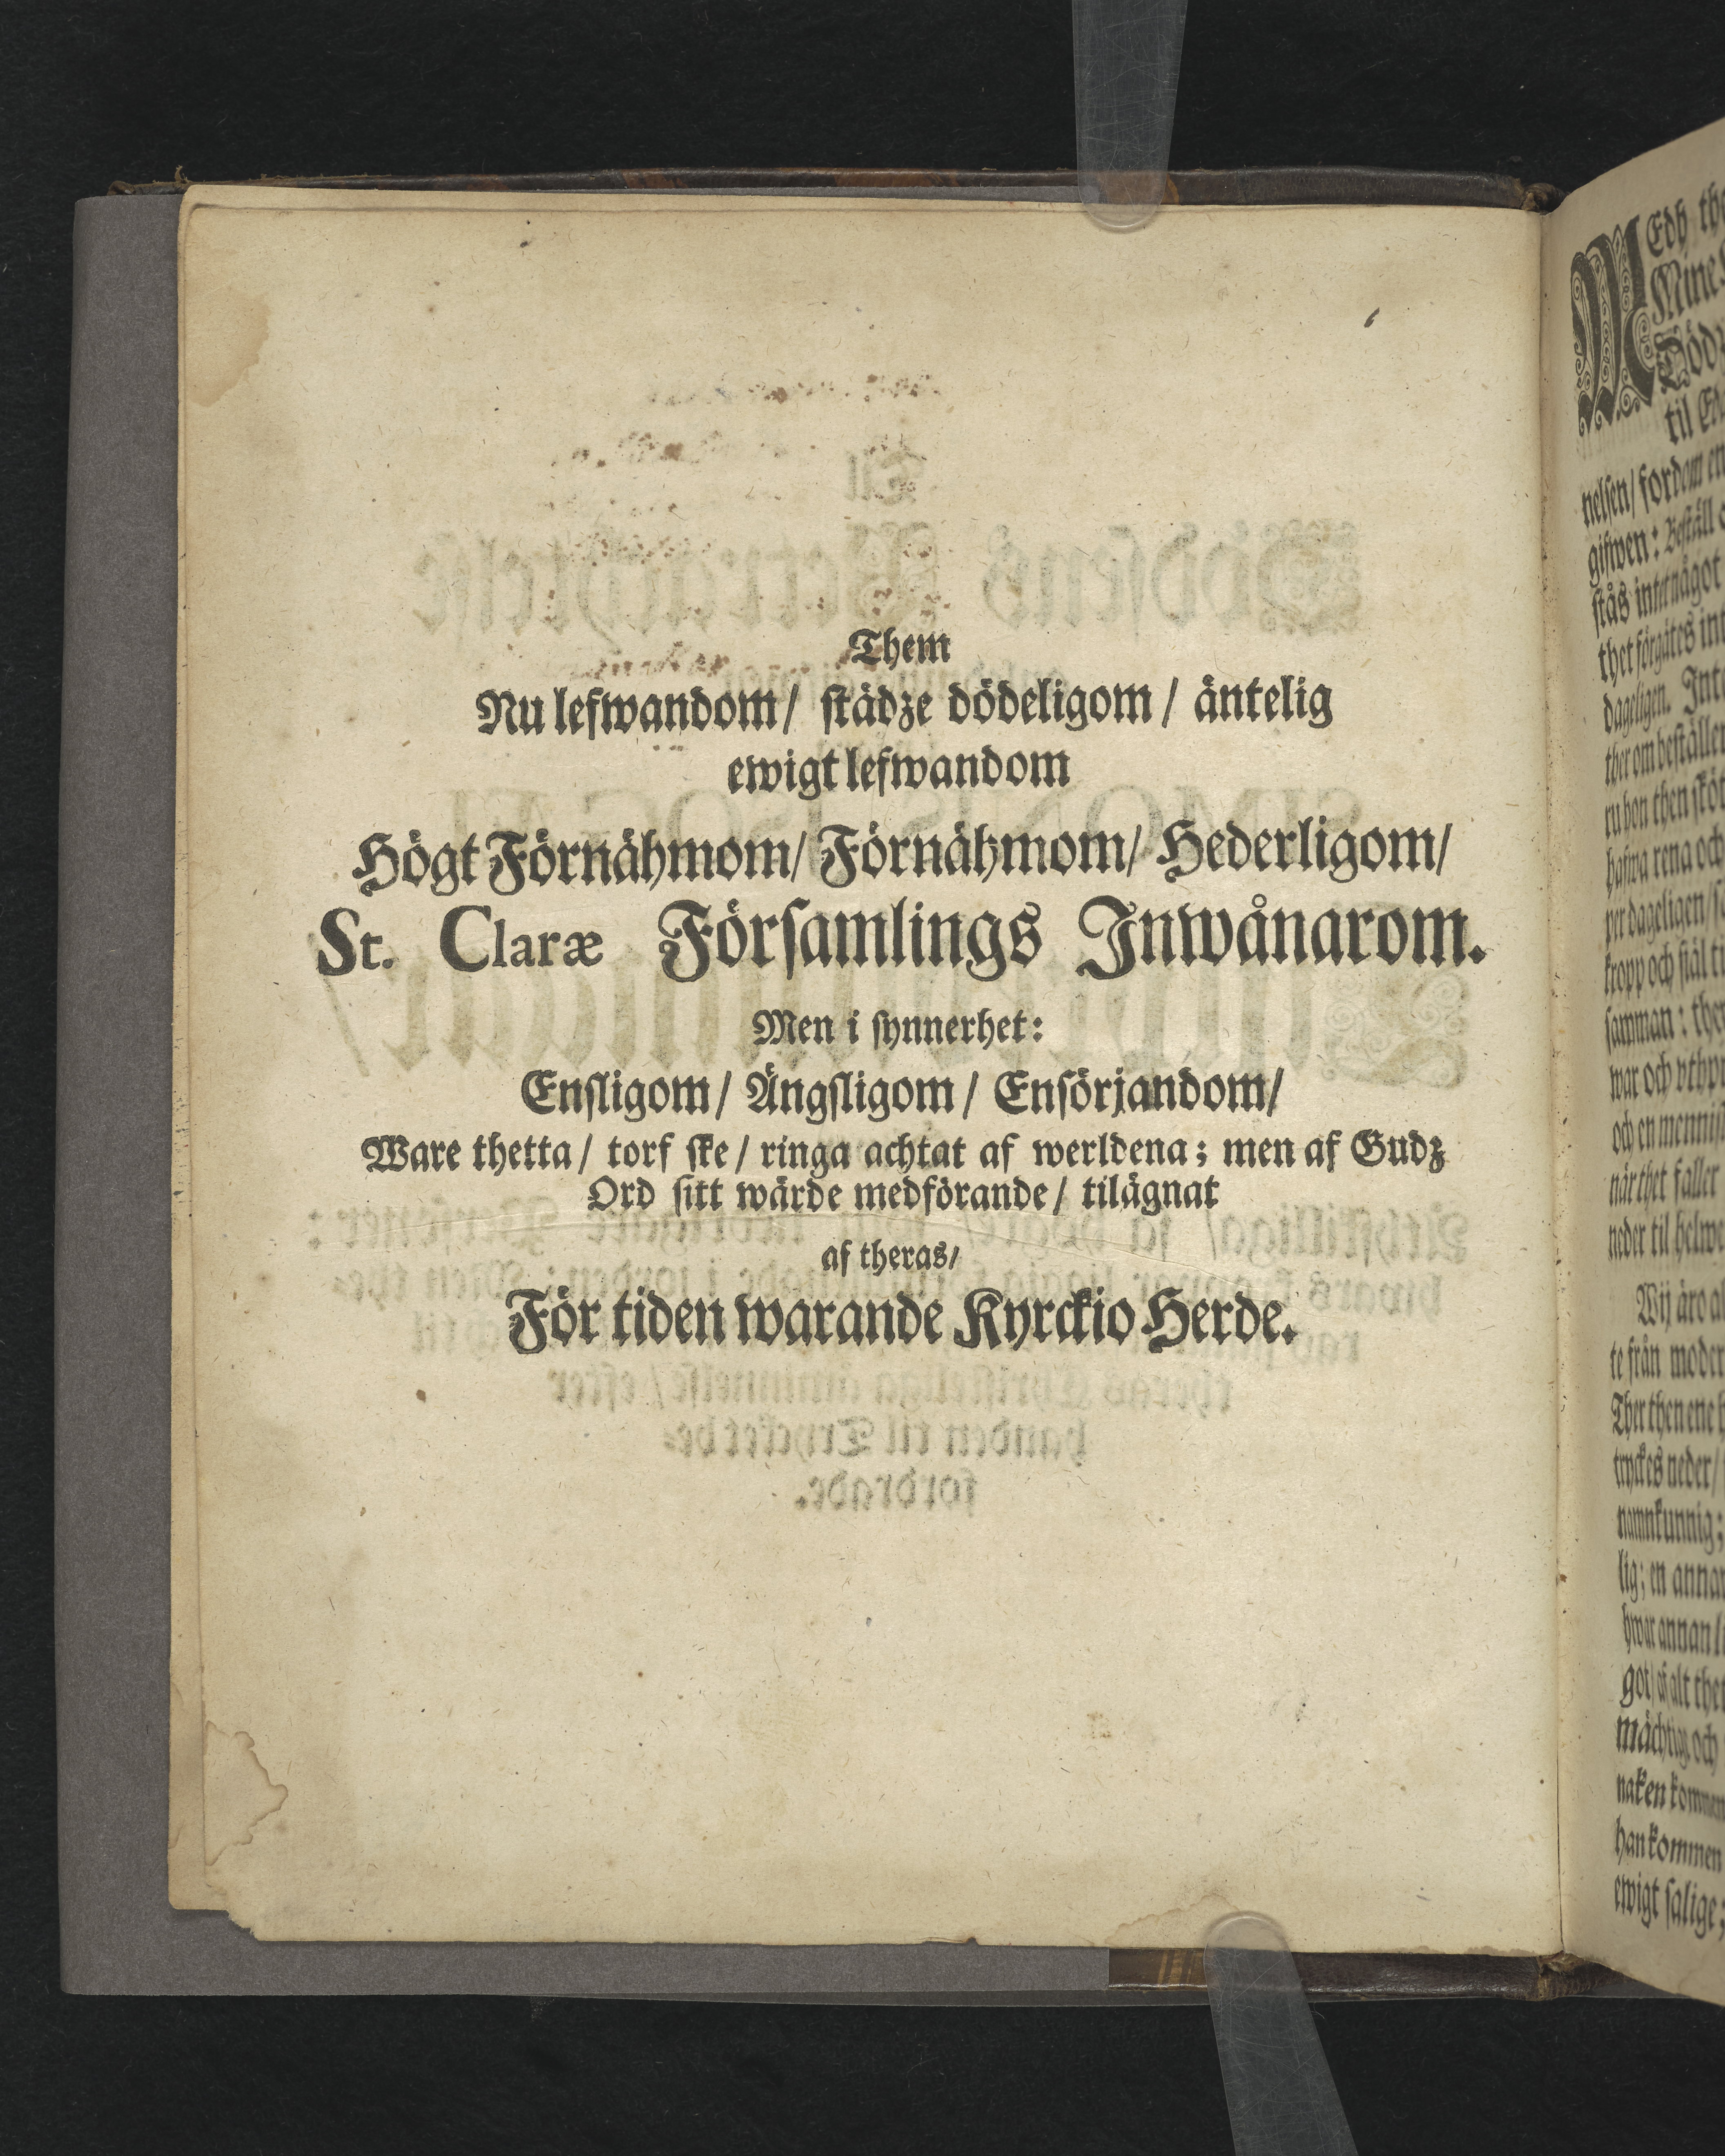 Them
Nu lefwandom/ städze dödeligom/ äntelig
ewigt lefwandom
Högt Förnähmom/ Förnähmom/ Hederligom/
St. Claræ Förſamlings Inwånarom.
Men i ſynnerhet:
Enſligom/ Ängſligom/ Enſörjandom/
Ware thetta/ torf ſke/ ringa achtat af werldena; men af Gudz
Ord ſitt wärde medförande/ tilägnat
af theras/
För tiden warande Kyrckio Herde.
MEdh
Mine
til
nelſen/ fordom
gifwen:
ſtås intet något
thet förgätes
dageligen.
ther om beſtäller
hafwa rena och
per dageligen/
kropp och ſiäl
ſamman:
war och
och en
när thet faller
neder til
Wij äro
te från
Ther then ene
tryckes neder/
namnkunnig;
lig; en
hwar annan
got/ af alt
mächtige och
naken
han kommen
ewigt ſalige;